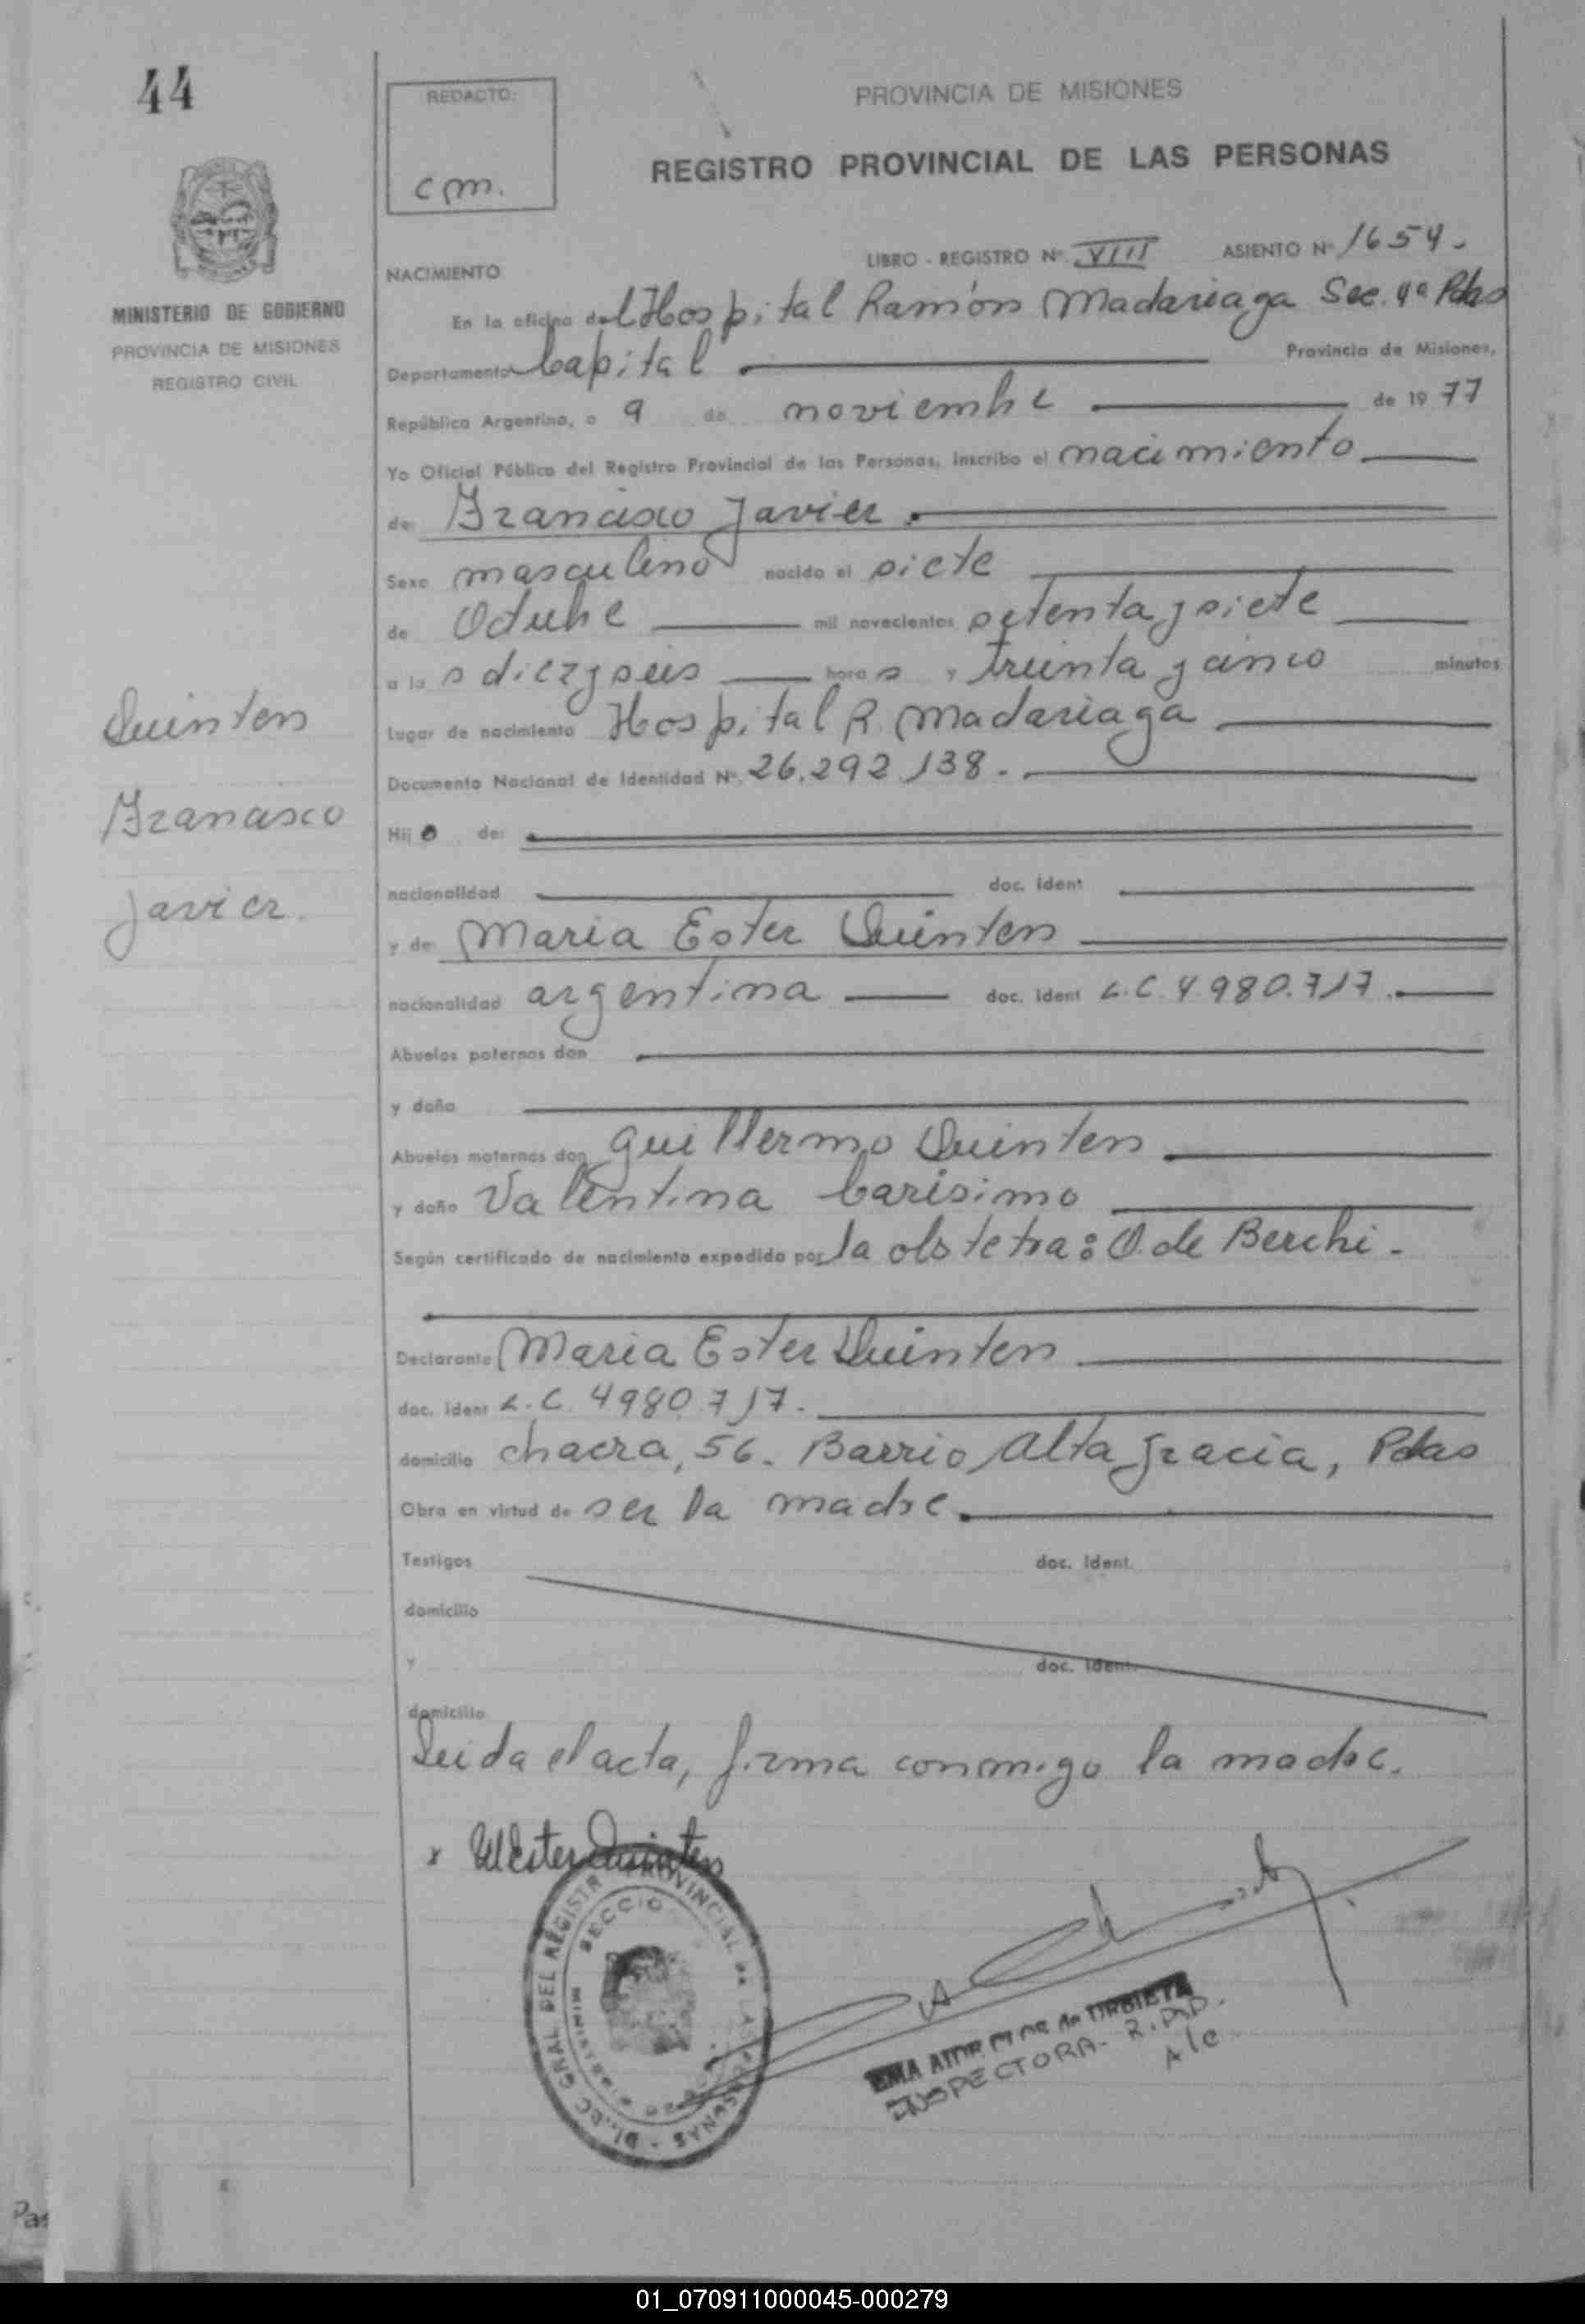 44
REDACTO:
cm.
PROVINCIA DE MISIONES
REGISTRO PROVINCIAL DE LAS PERSONAS
LIBRO - REGISTRO Nº VIII ASIENTO Nº 1654.
NACIMIENTO
MINISTERIO DE GOBIERNO
PROVINCIA DE MISIONES
REGISTRO CIVIL
En la oficina del Hospital Ramón Madariaga Sec. 4ª Pdas
Departamento Capital Provincia de Misiones,
República Argentina, a 9 de noviembre de 1977
Yo Oficial Público del Registro Provincial de las Personas, inscribo el nacimiento
de Francisco Javier.
Sexo masculino nacido el siete
de Octubre mil novecientos setenta y siete
a las diez y seis horas y treinta y cinco minutos
Lugar de nacimiento Hospital R. Madariaga
Documento Nacional de Identidad Nº 26.292.138.
Hijo de:
nacionalidad doc. ident
y de Maria Ester Quinten
nacionalidad argentina doc. ident L.C. 4.980.717.
Abuelos paternos don
y doña
Abuelos maternos don Guillermo Quinten
y doña Valentina Carisimo
Según certificado de nacimiento expedido por la obstetra: O. de Berchi.
Declarante Maria Ester Quinten
doc. ident L.C. 4980.717.
domicilio chacra, 56. Barrio Alta gracia, Pdas
Obra en virtud de ser la madre.
Testigos doc. ident.
domicilio
y doc. ident.
domicilio
Leida el acta, firma conmigo la madre.
x M Ester Quinten
Quinten
Francisco
Javier.
GRAL. DEL REGISTRO PROVINCIAL DE LAS PERSONAS
SECCIO
de URBIETA
INSPECTORA- R.P.P.
A/c
01_070911000045-000279